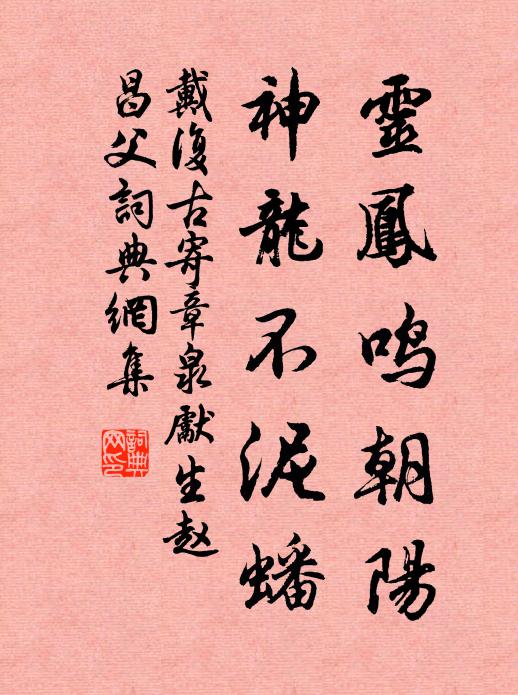 靈鳳鸣朝陽
神龍不泥蟠
戴復古寄章泉獻生赵
昌父詞典網集
詞典網印